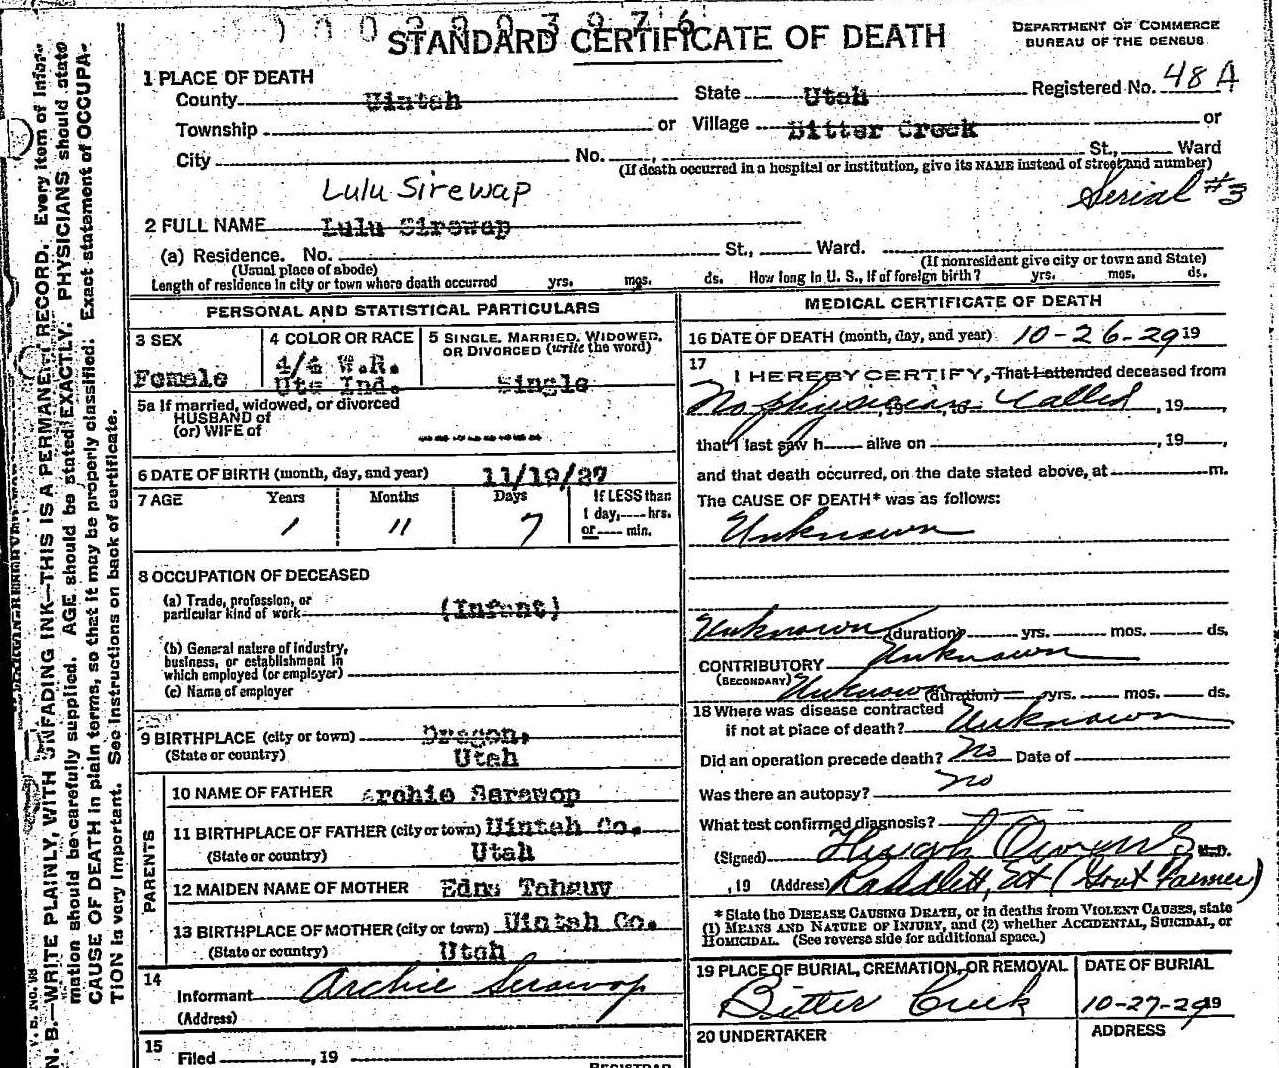 STANDARD CERTIFICATE OF DEATH
DEPARTMENT OF COMMERCE
BUREAU OF THE CENSUS
1 PLACE OF DEATH
County Uintah State Utah Registered No. 48 A
Township or Village Bitter Creek or
City No. St., Ward
(If death occurred in a hospital or institution, give its NAME instead of street and number)
Lulu Sirewap
Serial #3
2 FULL NAME Lulu Sirewap
(a) Residence. No. St., Ward.
(Usual place of abode) (If nonresident give city or town and State)
Length of residence in city or town where death occurred yrs. mos. ds. How long in U. S., if of foreign birth? yrs. mos. ds.
PERSONAL AND STATISTICAL PARTICULARS
3 SEX
Female
4 COLOR OR RACE
4/4 W.R.
Ute Ind.
5 SINGLE, MARRIED, WIDOWED, OR DIVORCED (write the word)
Single
5a If married, widowed, or divorced
HUSBAND of
(or) WIFE of
6 DATE OF BIRTH (month, day, and year) 11/19/27
7 AGE Years Months Days If LESS than
1 11 7 1 day, hrs.
or min.
8 OCCUPATION OF DECEASED
(a) Trade, profession, or
particular kind of work (Infant)
(b) General nature of industry,
business, or establishment in
which employed (or employer)
(c) Name of employer
9 BIRTHPLACE (city or town) Dragon,
(State or country) Utah
PARENTS
10 NAME OF FATHER Archie Serawop
11 BIRTHPLACE OF FATHER (city or town) Uintah Co.
(State or country) Utah
12 MAIDEN NAME OF MOTHER Edna Tabguv
13 BIRTHPLACE OF MOTHER (city or town) Uintah Co.
(State or country) Utah
14
Informant Archie Serawop
(Address)
15
Filed , 19
REGISTRAR
MEDICAL CERTIFICATE OF DEATH
16 DATE OF DEATH (month, day, and year) 10-26-29 19
17
I HEREBY CERTIFY, That I attended deceased from
No physician called , 19
that I last saw h alive on , 19 ,
and that death occurred, on the date stated above, at m.
The CAUSE OF DEATH* was as follows:
Unknown
Unknown (duration) yrs. mos. ds.
CONTRIBUTORY Unknown
(SECONDARY) Unknown (duration) yrs. mos. ds.
18 Where was disease contracted
if not at place of death? Unknown
Did an operation precede death? No Date of
Was there an autopsy? No
What test confirmed diagnosis?
(Signed) Hugh Owens M.D.
, 19 (Address) Randlett, Ut (Govt Farmer)
* State the DISEASE CAUSING DEATH, or in deaths from VIOLENT CAUSES, state
(1) MEANS AND NATURE OF INJURY, and (2) whether ACCIDENTAL, SUICIDAL, or
HOMICIDAL. (See reverse side for additional space.)
19 PLACE OF BURIAL, CREMATION, OR REMOVAL
Bitter Creek
DATE OF BURIAL
10-27-29 19
20 UNDERTAKER
ADDRESS
N. B.—WRITE PLAINLY, WITH UNFADING INK—THIS IS A PERMANENT RECORD. Every item of infor-
mation should be carefully supplied. AGE should be stated EXACTLY. PHYSICIANS should state
CAUSE OF DEATH in plain terms, so that it may be properly classified. Exact statement of OCCUPA-
TION is very important. See instructions on back of certificate.